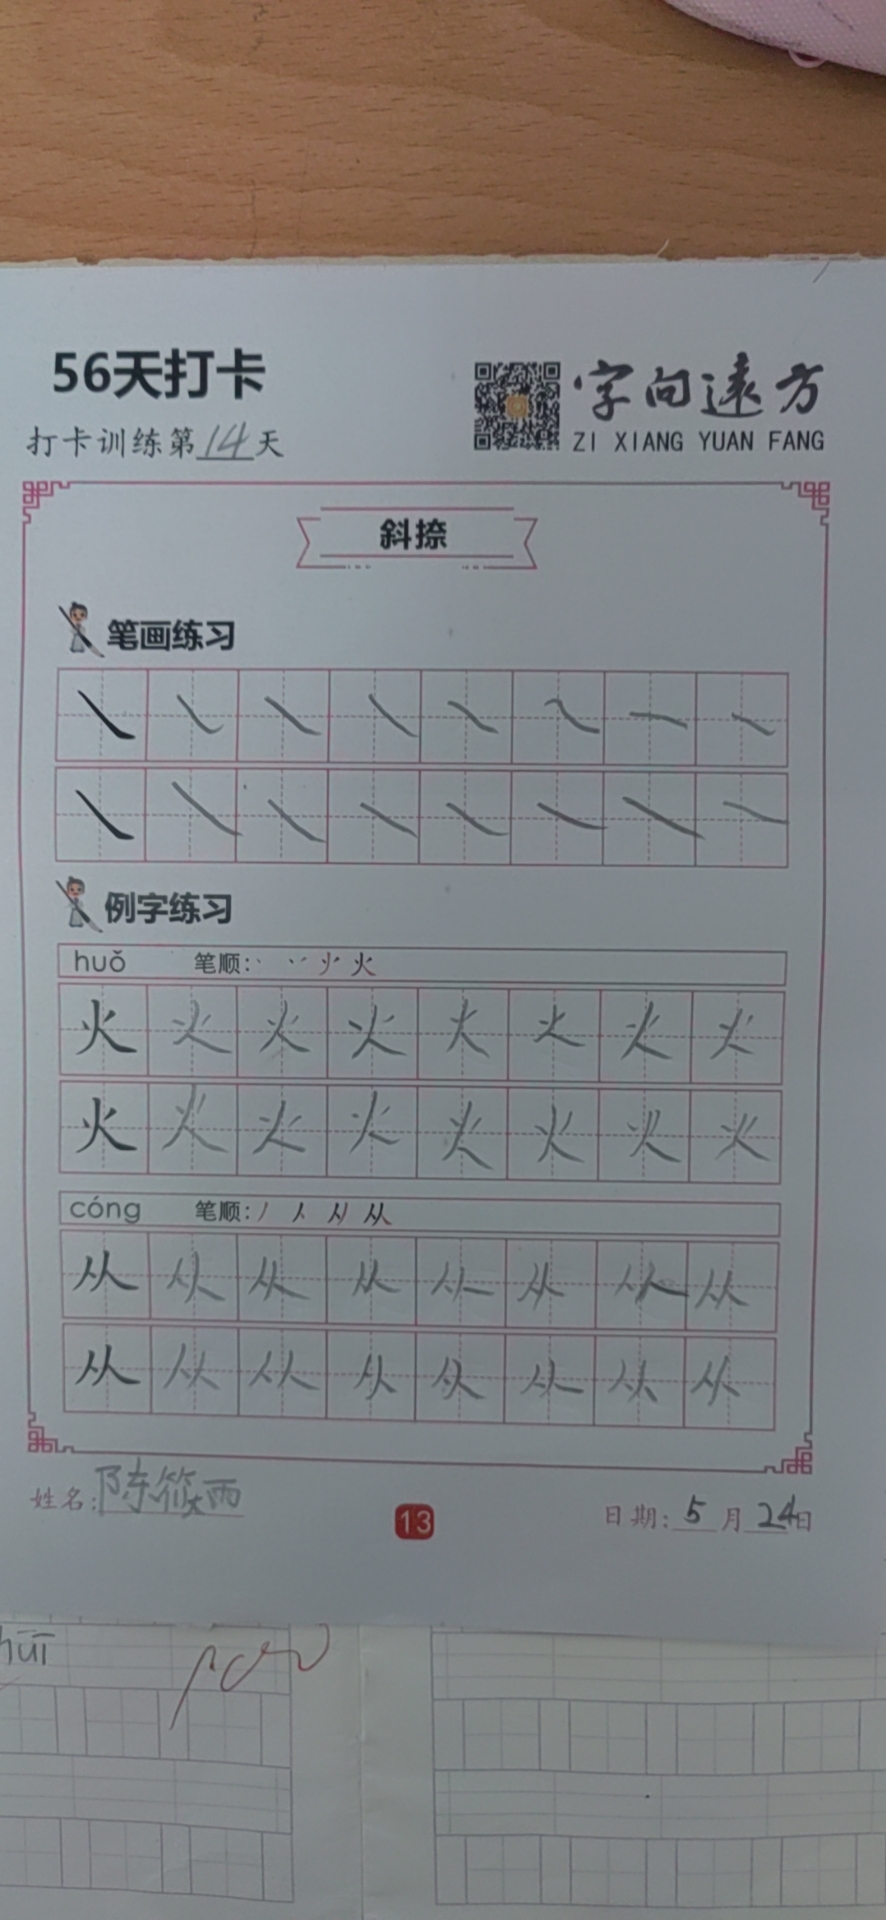 56天打卡
打卡训练第14天
字向遠方
ZI XIANG YUAN FANG
斜捺
笔画练习
㇏ ㇏ ㇏ ㇏ ㇏ ㇏ ㇏ ㇏
㇏ ㇏ ㇏ ㇏ ㇏ ㇏ ㇏ ㇏
例字练习
huǒ 笔顺: 火
火 火 火 火 火 火 火 火
火 火 火 火 火 火 火 火
cóng 笔顺: 丿 人 从
从 从 从 从 从 从 从 从
从 从 从 从 从 从 从 从
姓名:陈筱雨
13
日期:5月24日